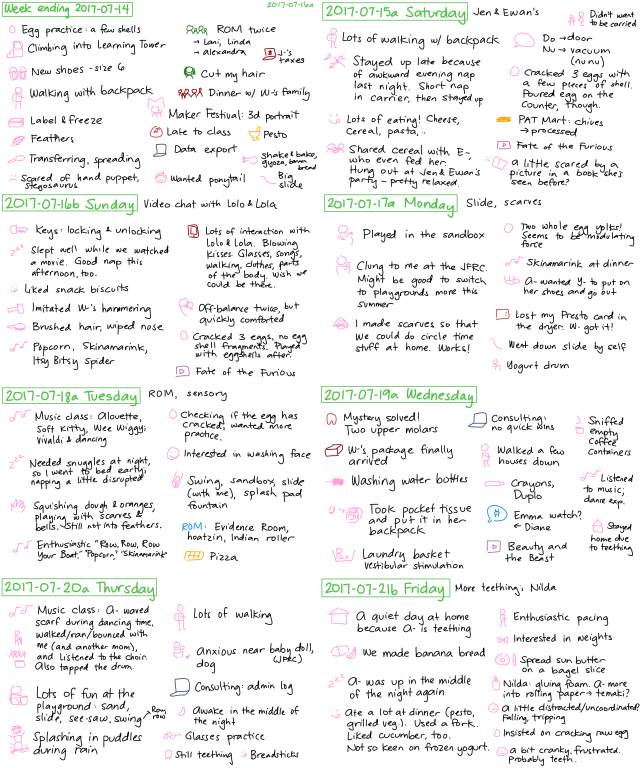 Week ending 2017-07-14
2017-07-16a
Egg practice: a few shells
Climbing into Learning Tower
New shoes - size 6
Walking with backpack
Label & freeze
Feathers
Transferring, spreading
Scared of hand puppet,
stegosaurus
ROM twice
→ Lani, Linda
→ alexandra
J-'s
taxes
Cut my hair
Dinner w/ W-'s family
Maker Festival: 3d portrait
Late to class
Pesto
Data export
Shake & bake,
gyoza, banana
bread
Wanted ponytail
Big
slide
2017-07-15a Saturday
Jen & Ewan's
Didn't want
to be carried
Lots of walking w/ backpack
Stayed up late because
of awkward evening nap
last night. Short nap
in carrier, then stayed up
Lots of eating! Cheese,
cereal, pasta, ..
Shared cereal with E-,
who even fed her.
Hung out at Jen & Ewan's
party - pretty relaxed.
Do → door
Nu → vacuum
(nu nu)
Cracked 3 eggs with
a few pieces of shell.
Poured egg on the
counter, though.
PAT Mart: chives
→ processed
Fate of the Furious
a little scared by a
picture in a book she's
seen before?
2017-07-16b Sunday
Video chat with Lolo & Lola
Keys: locking & unlocking
Slept well while we watched
a movie. Good nap this
afternoon, too.
Liked snack biscuits
Imitated W-'s hammering
Brushed hair, wiped nose
Popcorn, Skinamarink,
Itsy Bitsy Spider
Lots of interaction with
Lolo & Lola. Blowing
kisses. Glasses, songs,
walking, clothes, parts
of the body. Wish we
could be there.
Off-balance twice, but
quickly comforted
Cracked 3 eggs, no egg
shell fragments. Played
with eggshells after.
Fate of the Furious
2017-07-17a Monday
Slide, scarves
Played in the sandbox
Clung to me at the JFRC.
Might be good to switch
to playgrounds more this
summer
I made scarves so that
we could do circle time
stuff at home. Works!
Two whole egg yolks!
Seems to be modulating
force
Skinamarink at dinner
A- wanted Y- to put on
her shoes and go out
Lost my Presto card in
the dryer. W- got it!
Went down slide by self
Yogurt drum
2017-07-18a Tuesday
ROM, sensory
Music class: Alouette,
Soft Kitty, Wee Wiggy;
Vivaldi & dancing
Needed snuggles at night,
so I went to bed early;
napping a little disrupted
Squishing dough & oranges,
playing with scarves &
bells. Still not into feathers.
Enthusiastic "Row, Row, Row
Your Boat," "Popcorn," "Skinamarink"
Checking if the egg has
cracked, wanted more
practice.
Interested in washing face
Swing, sandbox, slide
(with me), splash pad
fountain
ROM: Evidence Room,
hoatzin, Indian roller
Pizza
2017-07-19a Wednesday
Mystery solved!
Two upper molars
W-'s package finally
arrived
Washing water bottles
Took pocket tissue
and put it in her
backpack
Laundry basket
Vestibular stimulation
Consulting:
no quick wins
Walked a few
houses down
Crayons,
Duplo
Emma watch?
Diane
Beauty and
the Beast
Sniffed
empty
coffee
containers
Listened
to music;
dance exp.
Stayed
home due
to teething
2017-07-20a Thursday
Music class: A- waved
scarf during dancing time,
walked/ran/bounced with
me (and another mom),
and listened to the choir.
Also tapped the drum.
Lots of fun at the
playground: sand,
slide, see-saw, swing
Row,
row
Splashing in puddles
during rain
Lots of walking
anxious near baby doll,
dog
(JFRC)
Consulting: admin log
Awake in the middle of
the night
Glasses practice
Still teething
Breadsticks
2017-07-21b Friday
More teething; Nilda
A quiet day at home
because A- is teething
We made banana bread
A- was up in the middle
of the night again
Ate a lot at dinner (pesto,
grilled veg.). Used a fork.
Liked cucumber, too.
Not so keen on frozen yogurt.
Enthusiastic pacing
Interested in weights
Spread sun butter
on a bagel slice
Nilda: gluing foam. A- more
into rolling paper → temaki?
a little distracted/uncoordinated?
Falling, tripping
Insisted on cracking raw egg
a bit cranky, frustrated.
Probably teeth.